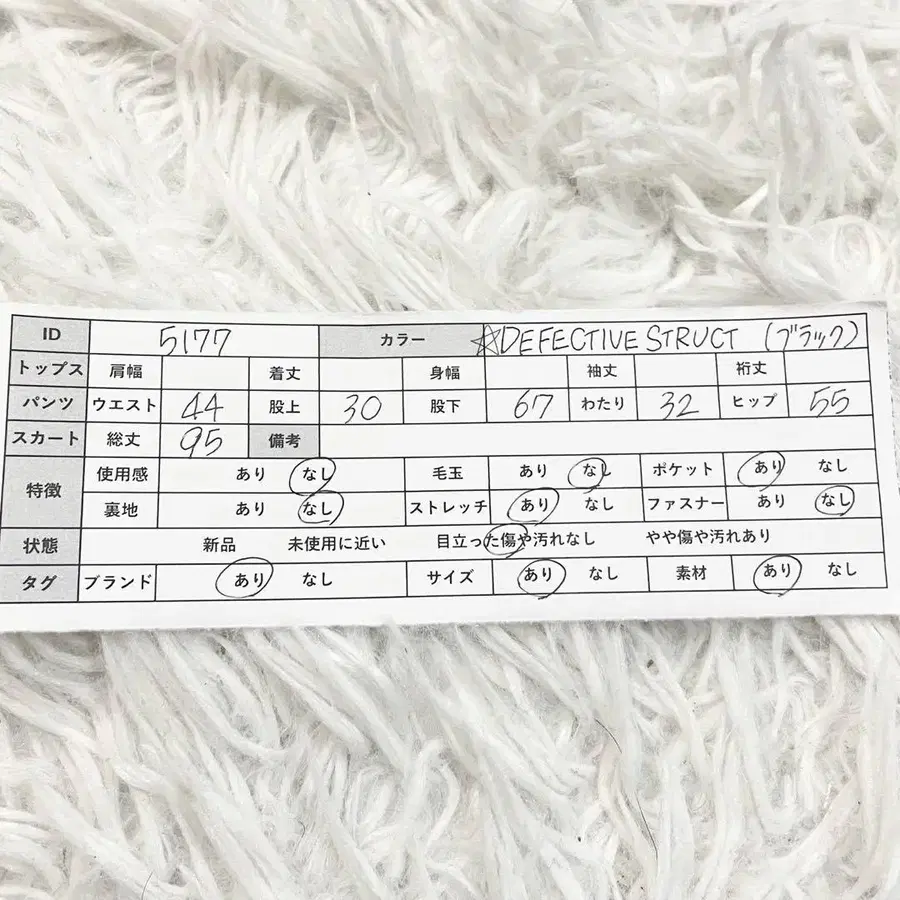 ID 5177 カラー ☆DEFECTIVE STRUCT (ブラック)
トップス 肩幅 着丈 身幅 袖丈 裄丈
パンツ ウエスト 44 股上 30 股下 67 わたり 32 ヒップ 55
スカート 総丈 95 備考
特徴 使用感 あり なし 毛玉 あり なし ポケット あり なし
裏地 あり なし ストレッチ あり なし ファスナー あり なし
状態 新品 未使用に近い 目立った傷や汚れなし やや傷や汚れあり
タグ ブランド あり なし サイズ あり なし 素材 あり なし